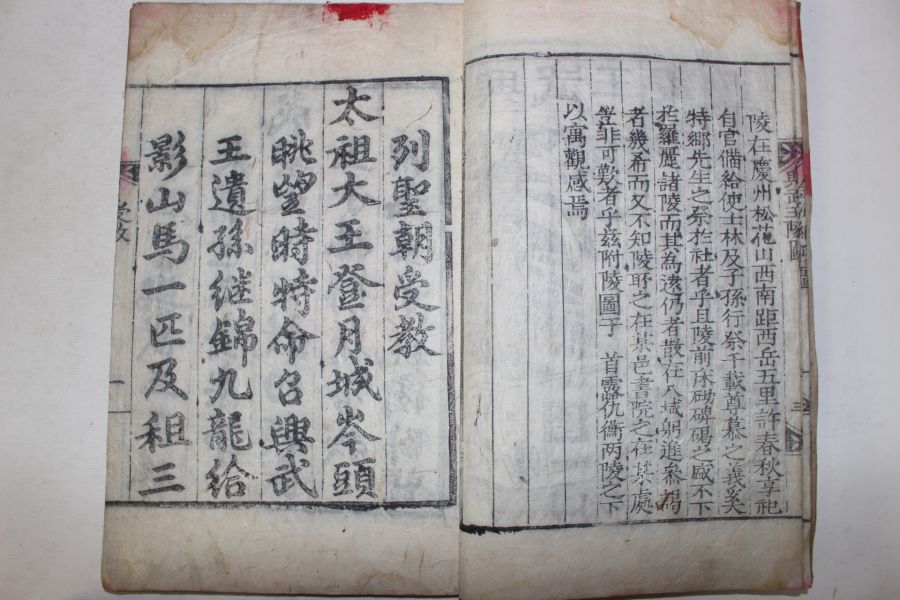 興武王陵圖
三
陵在慶州松花山西南距西岳五里許春秋享祀
自官備給使士林及子孫行祭千載尊慕之義奚
特鄉先生之祭於社者乎且陵前床砌碑碣之盛不下
於羅麗諸陵而其為遠仍者散在八域躬進參謁
者幾希而又不知陵所之在某邑書院之在某處
豈非可歎者乎玆附陵圖于 首露仇衝两陵之下
以寓觀感焉
列聖朝受教
太祖大王登月城岑頭
眺望時特命召興武
王遺孫継錦九龍給
影山馬一匹及租三
受教
一